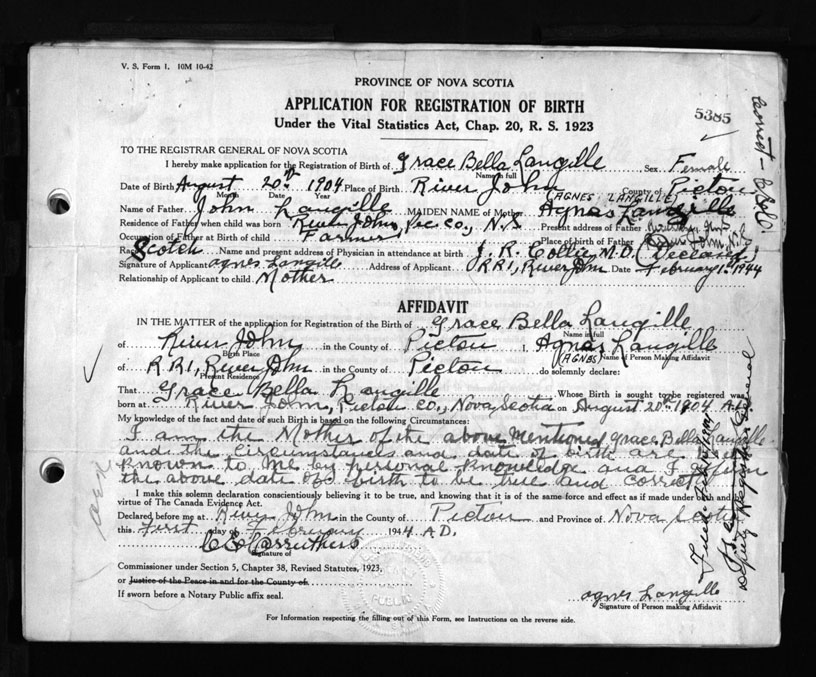 V. S. Form 1. 10M 10-42
PROVINCE OF NOVA SCOTIA
APPLICATION FOR REGISTRATION OF BIRTH
5385
Under the Vital Statistics Act, Chap. 20, R. S. 1923
TO THE REGISTRAR GENERAL OF NOVA SCOTIA
I hereby make application for the Registration of Birth of Grace Bella Langille Sex Female
Name in full
Date of Birth August 20th 1904 Place of Birth River John County of Pictou
Month Date Year
(AGNES LANGILLE)
Name of Father John Langille MAIDEN NAME of Mother Agnes Langille
Residence of Father when child was born River John, Pic. Co., N.S. Present address of Father
Occupation of Father at Birth of child Farmer Place of birth of Father River John, N.S.
Race Scotch Name and present address of Physician in attendance at birth J. R. Collie M.D. (Deceased)
Signature of Applicant Agnes Langille Address of Applicant RR1, River John Date February 1st 1944
Relationship of Applicant to child Mother
AFFIDAVIT
IN THE MATTER of the application for Registration of the Birth of Grace Bella Langille
Name in full
of River John in the County of Pictou I, Agnes Langille
Birth Place (AGNES) Name of Person Making Affidavit
of RR1, River John in the County of Pictou do solemnly declare:
Present Residence
That Grace Bella Langille, Whose Birth is sought to be registered was
born at River John, Pictou Co., Nova Scotia on August 20th 1904 A.D.
My knowledge of the fact and date of such Birth is based on the following Circumstances:
I am the Mother of the above Mentioned Grace Bella Langille
and the circumstances and date of birth are
known to me by personal knowledge and I
the above date of birth to be true and correct
I make this solemn declaration conscientiously believing it to be true, and knowing that it is of the same force and effect as if made under oath and
virtue of The Canada Evidence Act.
Declared before me at River John in the County of Pictou and Province of Nova Scotia
this First day of February 1944 A.D.
C E Carruthers
Signature of
Commissioner under Section 5, Chapter 38, Revised Statutes, 1923,
or Justice of the Peace in and for the County of
If sworn before a Notary Public affix seal.
Agnes Langille
Signature of Person making Affidavit
For Information respecting the filling out of this Form, see Instructions on the reverse side.
Deputy Registrar General